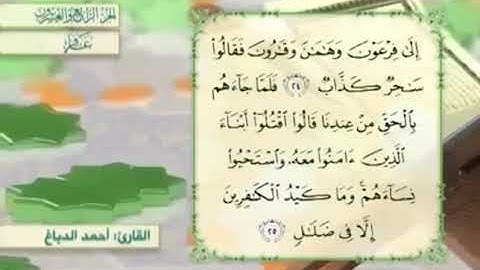 الجزء الرابع والعشرون
غافر
إِلَىٰ فِرْعَوْنَ وَهَـٰمَـٰنَ وَقَـٰرُونَ فَقَالُوا۟
سَـٰحِرٌ كَذَّابٌ ٢٤ فَلَمَّا جَآءَهُم
بِٱلْحَقِّ مِنْ عِندِنَا قَالُوا۟ ٱقْتُلُوٓا۟ أَبْنَآءَ
ٱلَّذِينَ ءَامَنُوا۟ مَعَهُۥ وَٱسْتَحْيُوا۟
نِسَآءَهُمْ ۚ وَمَا كَيْدُ ٱلْكَـٰفِرِينَ
إِلَّا فِى ضَلَـٰلٍ ٢٥
القارئ: أحمد الدباغ